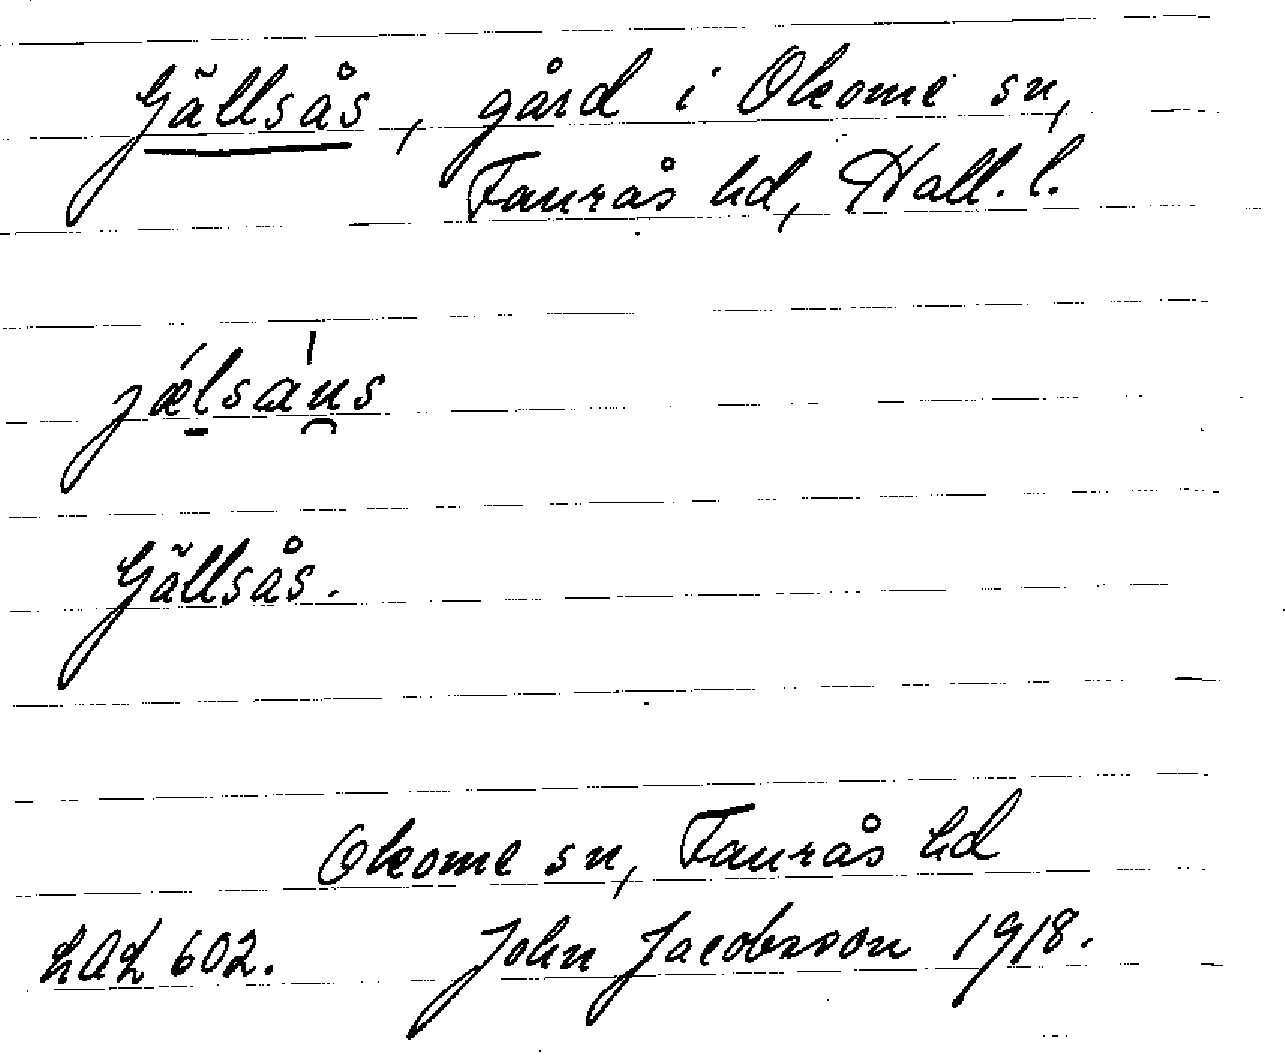 Gällsås, gård i Okome sn,
Faurås hd, Hall. l.
jǽl̠sáu̯s
Gällsås.
Okome sn, Faurås hd
LAL 602. John Jacobsson 1918.